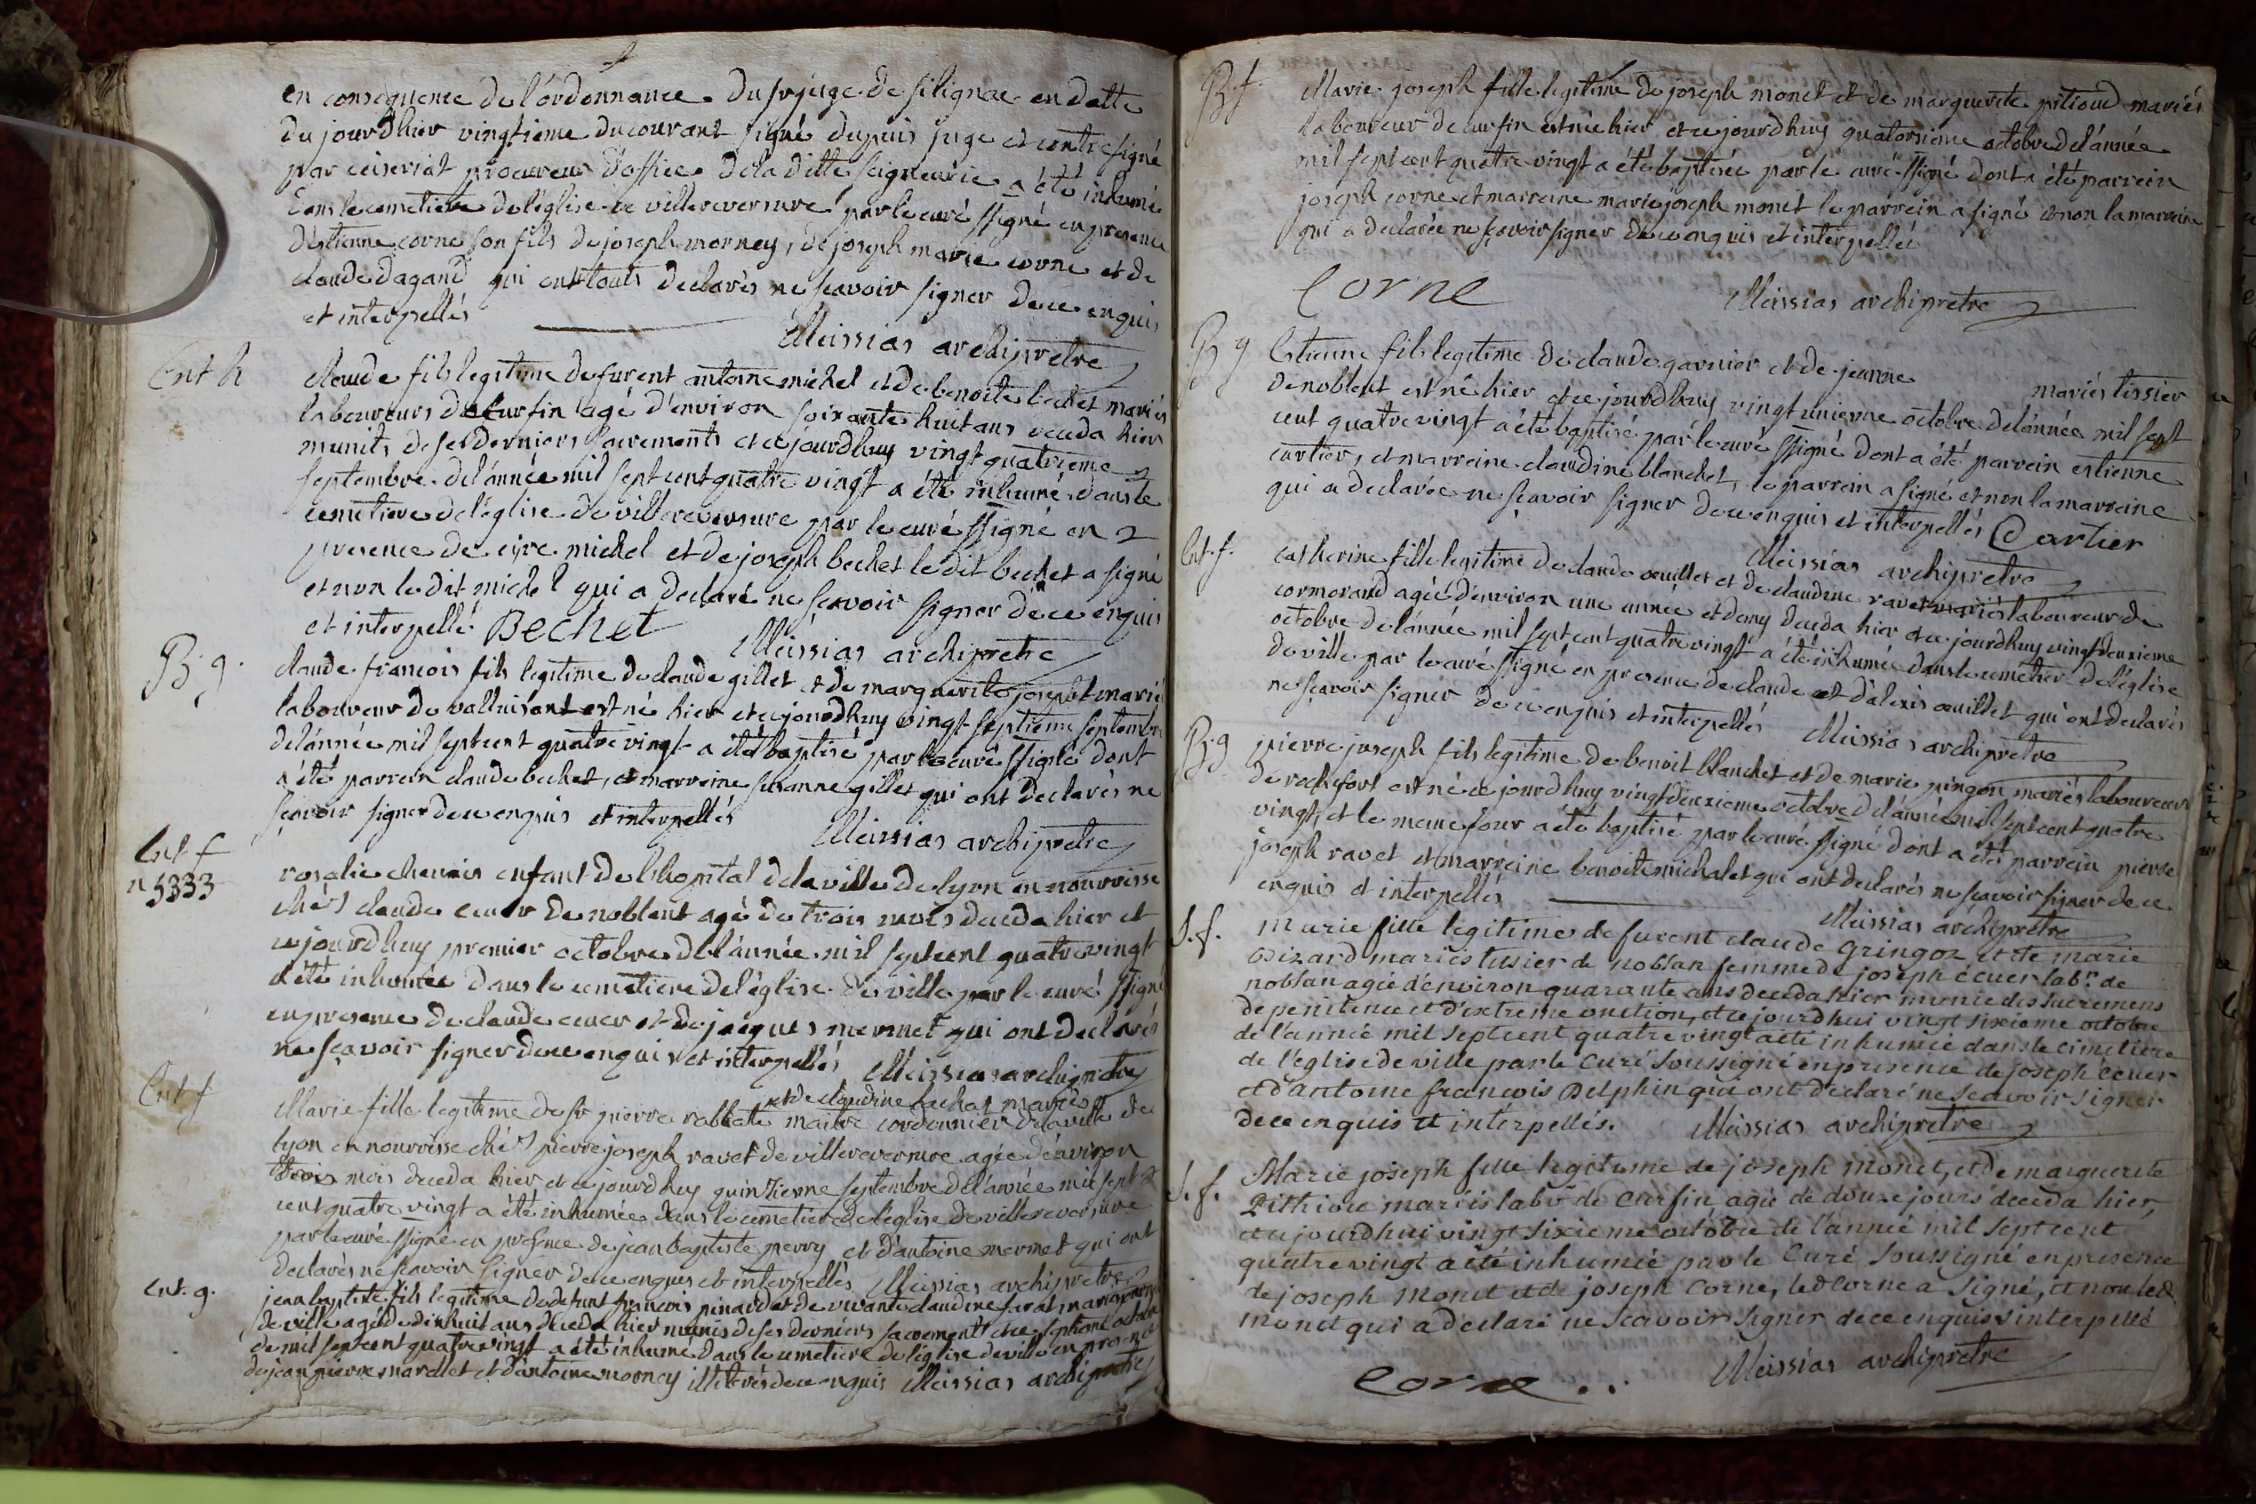 en consequence de l'ordonnance du sr juge de filignac en datte
du jourd'hier vingtieme du courant signé dupuis juge et contresigné
par ceiseriat procureur d'office de la ditte seigneurie a été inhumé
dans le cemetiere de l'église de villereversure par le curé ssigné en presence
d'éstienne corne son fils de joseph morney, de joseph marie corne et de
claude dagand qui ont touts declarés ne scavoir signer de ce enquis
et interpellés
Meissias archiprêtre
Ent h
claude fils legitime de furent antoine michel et de benoite bechet mariés
laboureurs de Curfin agé d'environ soixante huit ans deceda hier
munit de ses derniers sacrements et ce jourdhuy vingt quatrieme
septembre de l'année mil sept cent quatre vingt a été inhumé dans le
cemetiere de l'église de villereversure par le curé ssigné en
presence de michel et de joseph bechet le dit bechet a signé
et non le dit michel qui a declaré ne scavoir signer de ce enquis
et interpellé Bechet
Meissias archiprêtre
B. g.
claude francois fils legitime de claude gillet et de marguerite josept mariés
laboureur de valluisant est né hier et ce jourdhuy vingt septieme septembre
de l'année mil sept cent quatre vingt a été baptisé par le curé ssigné dont
a été parrein claude bechet, et marreine susanne gillet qui ont declarés ne
scavoir signer de ce enquis et interpellés
Meissias archiprêtre
Ent f
n 5333
rosalie chenais enfant de l'hopital de la ville de lyon en nourrisse
chés claude ceuer de noblent agé de trois mois deceda hier et
ce jourdhuy premier octobre de l'année mil sept cent quatre vingt
a été inhumée dans le cemetiere de l'église de ville par le curé ssigné
en presence de claude ceuer et de jacques mermet qui ont declarés
ne scavoir signer de ce enquis et interpellés Meissias archiprêtre
Ent f
et de claudine lachat mariés
Marie fille legitime de sr pierre rabbate maitre cordonnier de la ville de
lyon en nourrisse chés pierre joseph ravet de villereversure agée d'environ
trois mois deceda hier et ce jourdhuy quinzieme septembre de l'année mil sept
cent quatre vingt a été inhumée dans le cemetiere de l'église de villereversure
par le curé ssigné en presence de jean baptiste perry et d'antoine mermet qui ont
declarés ne scavoir signer de ce enquis et interpellés Meissias archiprêtre
Ent. g.
jean baptiste fils legitime de defunt francois pinard et de vivante claudine farat mariés
de ville agé de dix huit ans deceda hier munis de ses derniers sacrements et ce septieme octobre
de mil sept cent quatre vingt a été inhumé dans le cemetiere de l'église de ville en presence
de jean pierre marellet et d'antoine morney illiterés de ce enquis Meissias archiprêtre
B. f.
Marie joseph fille legitime de joseph monet et de marguerite pitioud mariés
laboureur de curfin est née hier et ce jourdhuy quatorsieme octobre de l'année
mil sept cent quatre vingt a été baptisée par le curé ssigné dont a été parrein
joseph corne et marreine marie joseph monet le parrein a signé et non la marreine
qui a declarée ne scavoir signer de ce enquis et interpellée
Corne
Meissias archiprêtre
B g
Estienne fils legitime de claude garnier et de jeanne mariés tissier
de noblent est né hier et ce jourdhuy vingt unieme octobre de l'année mil sept
cent quatre vingt a été baptisé par le curé ssigné dont a été parrein estienne
cartier, et marreine claudine blanchet, le parrein a signé et non la marreine
qui a declarée ne scavoir signer de ce enquis et interpellés Cartier
Meissias archiprêtre
Ent. f.
catherine fille legitime de claude œuillet et de claudine ravet mariés laboureur de
cormorand agée d'environ une année et demy deceda hier et ce jourdhuy vingt deuxieme
octobre de l'année mil sept cent quatre vingt a été inhumée dans le cemetier de l'église
de ville par le curé ssigné en presence de claude et d'alexis œuillet qui ont declarés
ne scavoir signer de ce enquis et interpellés Meissias archiprêtre
B. g
pierre joseph fils legitime de benoit blanchet et de marie pingon mariés laboureurs
de rochefort est né ce jourdhuy vingt deuxieme octobre de l'année mil sept cent quatre
vingt, et le meme jour a été baptisé par le curé ssigné dont a été parrein pierre
joseph ravet et marreine benoite michalet qui ont declarés ne scavoir signer de ce
enquis et interpellés
Meissias archiprêtre
S. f.
Marie fille legitime de furent claude Gringoz et de marie
Bizard mariés tissier de noblan femme de joseph écuer labr. de
noblan agée d'environ quarante ans deceda hier munie des sacremens
de penitence et d'extreme onction, et ce jourd'hui vingt sixieme octobre
de l'année mil sept cent quatre vingt a été inhumée dans le cimetiere
de l'église de ville par le Curé Soussigné en presence de joseph écuer
et d'antoine francois Delphin qui ont declaré ne Scavoir signer
de ce enquis et interpellés. Meissias archiprêtre
S. f.
Marie joseph fille legitime de joseph Monet, et de marguerite
Pithiou mariés labr de Curfin agée de douze jours deceda hier,
et ce jourd'hui vingt sixieme octobre de l'année mil sept cent
quatre vingt a été inhumée par le Curé Soussigné en presence
de joseph Monet et de joseph Corne, led Corne a Signé, et non led
Monet qui a declaré ne Scavoir signer de ce enquis interpellé
Meissias archiprêtre
Corne